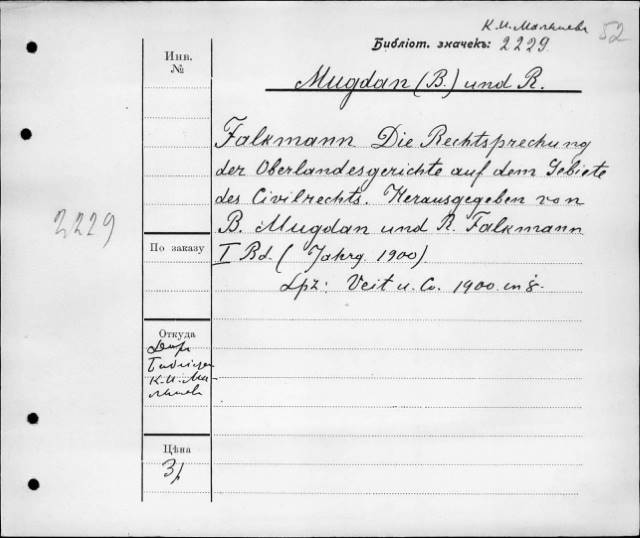 К. И. Малышева 52
Библіот. значекъ: 2229.
Инв.
№
Mugdan (B.) und R.
Falkmann Die Rechtsprechung
der Oberlandesgerichte auf dem Gebiete
des Civilrechts. Herausgegeben von
B. Mugdan und R. Falkmann
I Bd. (Jahrg. 1900).
Lpz: Veit u. Co. 1900. in 8.
2229
По заказу
Откуда
Даръ
К. И. Ма-
лышева
Цѣна
3р